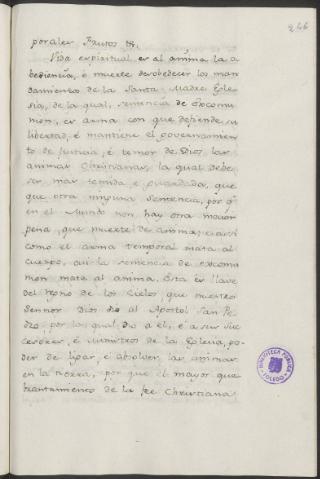 246
por aler Frutos &.
Vida espiritual es al anima la o
bediencia, é muerte desobedecer los man
damientos de la Santa Madre Egle
sia, de la qual, sentencia de Excomu
nion, es arma con que defiende su
libertad, é mantiene el governamien
to de Justicia, é temor de Dios las
animas Christianas, la qual debe
ser mas temida e guardada, que
que otra ninguna sentencia, por q.e
en el Mundo non hay otra maior
pena, que muerte de anima; e asi
como el arma temporal mata al
cuerpo, asi la sentencia de excomu
nion mata al anima. Esta es llave
del Regno de los Cielos, que nuestro
Sennor Dios dio al Apostol San Pe
dro, por la qual dio a el, é a sus suc
cesores, é Ministros de la Eglesia, po-
der de ligar, é absolver las animas
en la tierra, por que el mayor que
brantamiento de la fee Christiana
BIBLIOTECA PUBLICA
TOLEDO